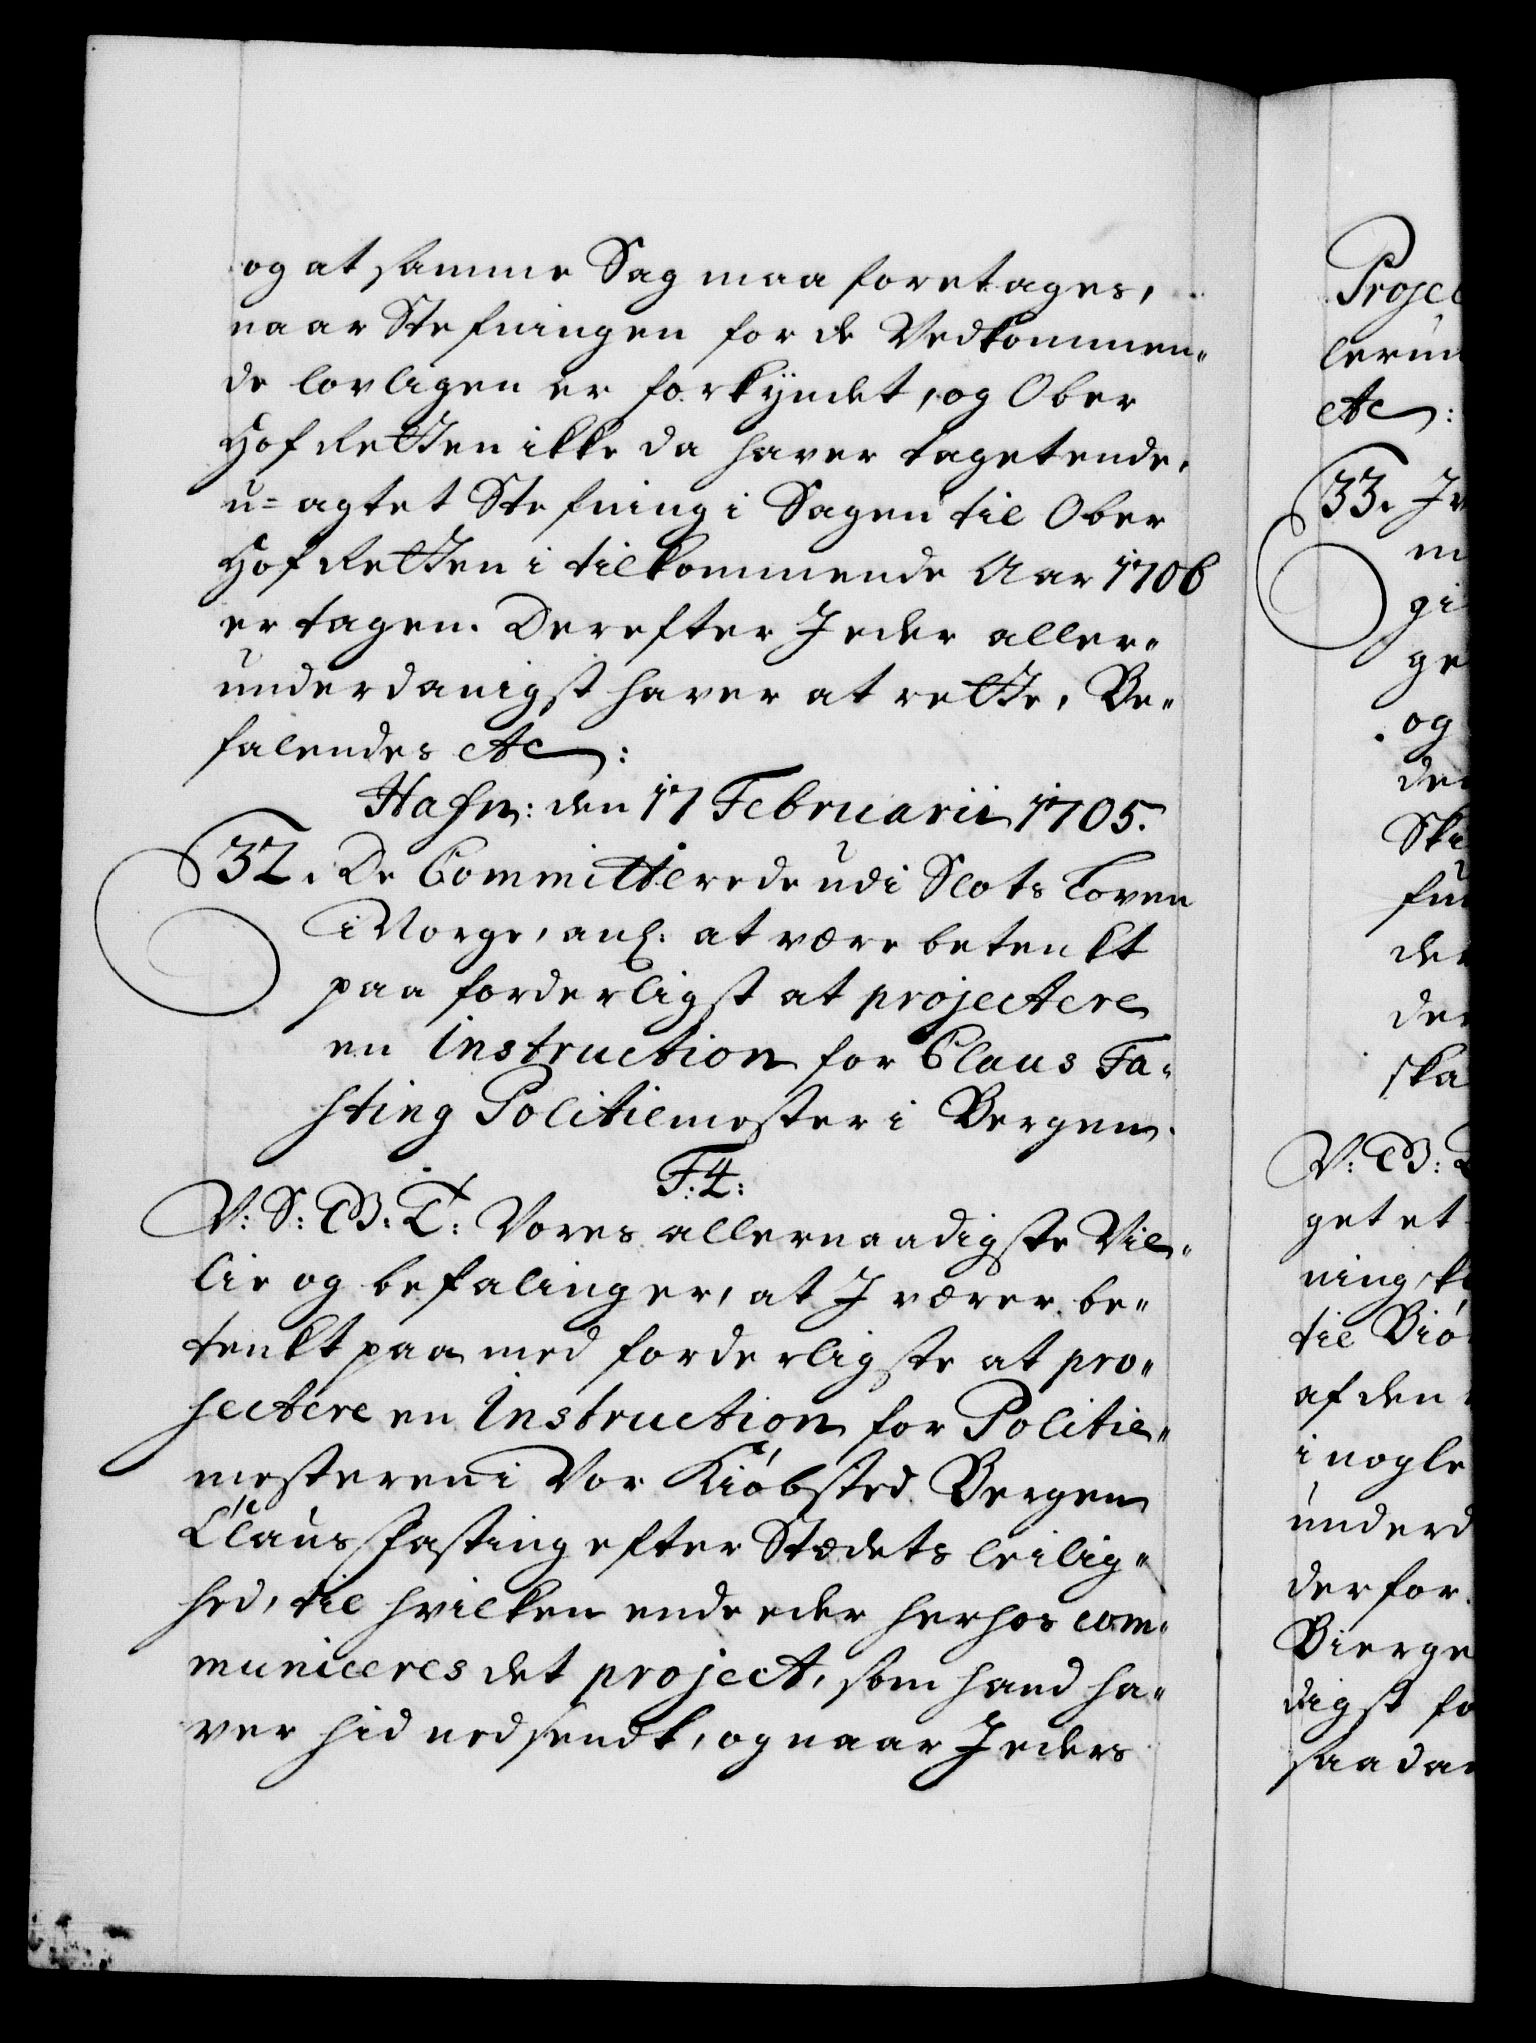 og at samme Sag maa foretages,
naar Stefningen for de Vedkommen-
de lovligen er forkyndet, og Ober
Hof Retten ikke da haver taget ende,
u-agtet Stefning i Sagen til Ober
Hof Retten i tilkommende Aar 1706
er tagen. Derefter I eder aller-
underdanigst haver at rette, Be-
falendes etc:
Hafn: den 17 Februarii 1705.
32. De Committerede udi Slots Loven
i Norge, anl: at være betenkt
paa forderligst at projectere
en Instruction for Claus Fa-
sting Politiemester i Bergen.
F:4:
V: S: G: B: T: Vores allernaadigste Vil-
lie og befalinger, at I værer be-
tenkt paa med forderligste at pro-
jectere en Instruction for Politie-
mesteren i Vor Kiøbsted Bergen
Claus Fasting efter Stædets leilig-
hed, til hvilken ende eder herhos com-
municeres det project, som hand ha-
ver hid nedsendt, og naar I eders
Projec
lerin
etc:
33. Iv
m
gi
ge
og
den
Ska
fun
den
den
ska
V: G: B:
get et
ning, k
til Biø
af den
i nogle
underd
derfor
Bierge
digst fo
saadan